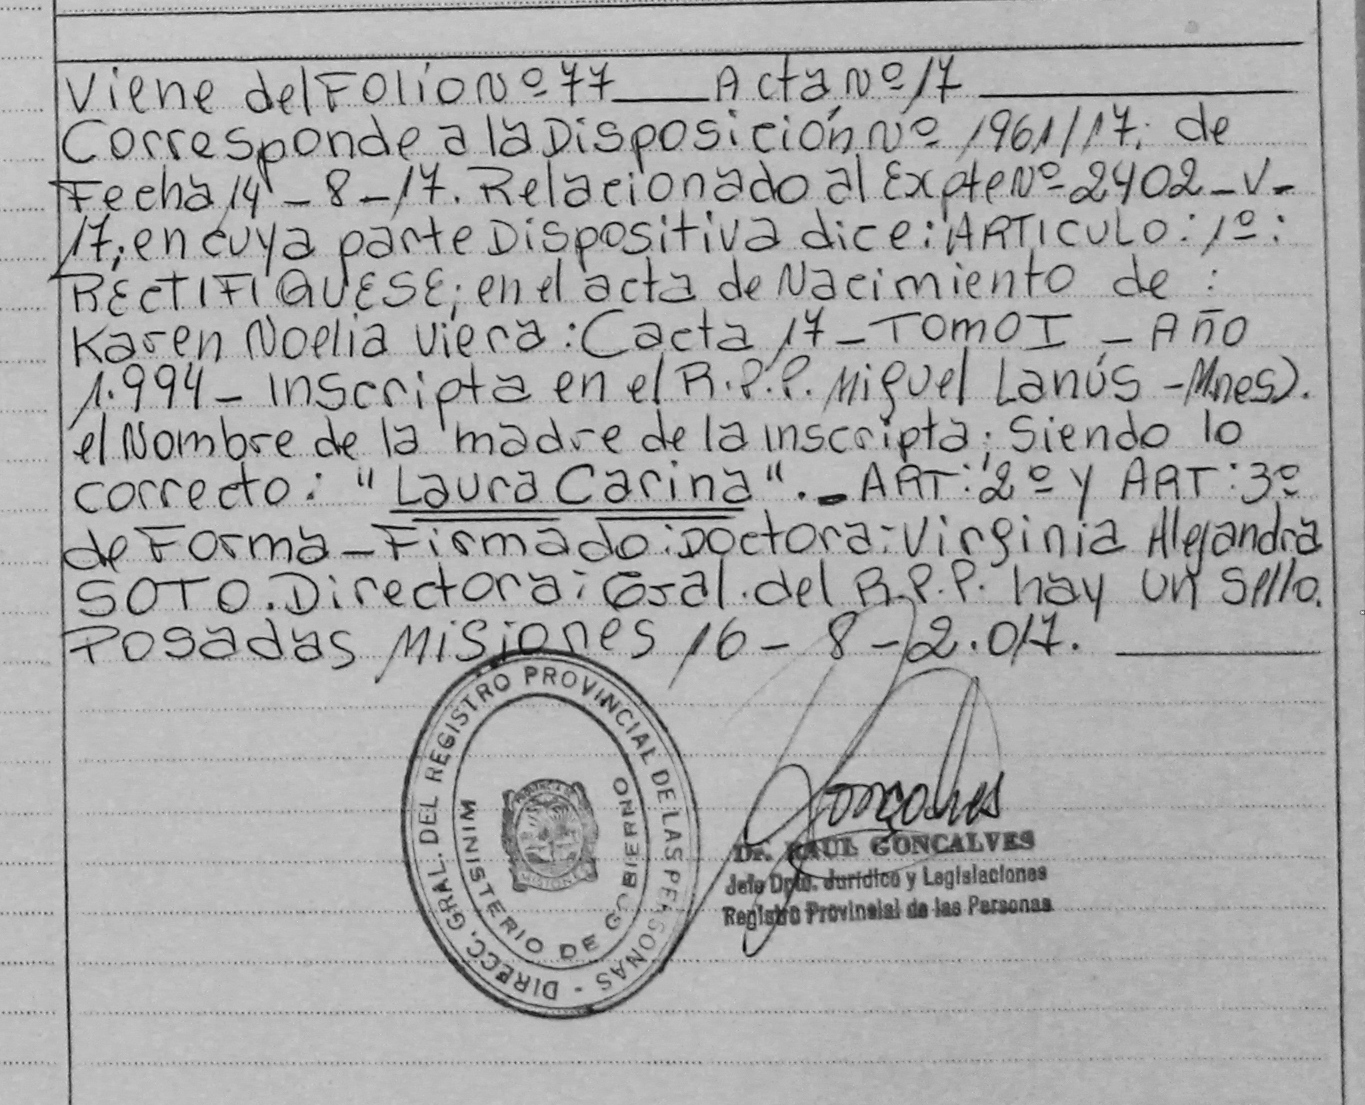 Viene del Folio Nº 77 ____ Acta Nº 17 ________
Corresponde a la Disposición Nº 1961/17; de
Fecha 14-8-17. Relacionado al Expte Nº 2402-V-
17; en cuya parte Dispositiva dice: ARTICULO: 1º:
RECTIFIQUESE; en el acta de Nacimiento de :
Karen Noelia Viera: Cacta 17 - TOMO I - Año
1.994 - Inscripta en el R.P.P. Miguel Lanús - Mnes).
el Nombre de la madre de la inscripta; Siendo lo
correcto: "Laura Carina". - ART: 2º y ART: 3º
de Forma - Firmado: Doctora: Virginia Alejandra
SOTO. Directora: Gral. del R.P.P. hay un Sello.
Posadas Misiones 16-8-2.017. ________
DIRECC. GRAL. DEL REGISTRO PROVINCIAL DE LAS PERSONAS -
MINISTERIO DE GOBIERNO
MISIONES
Goncalves
Dr. RAUL GONCALVES
Jefe Dpto. Jurídico y Legislaciones
Registro Provincial de las Personas